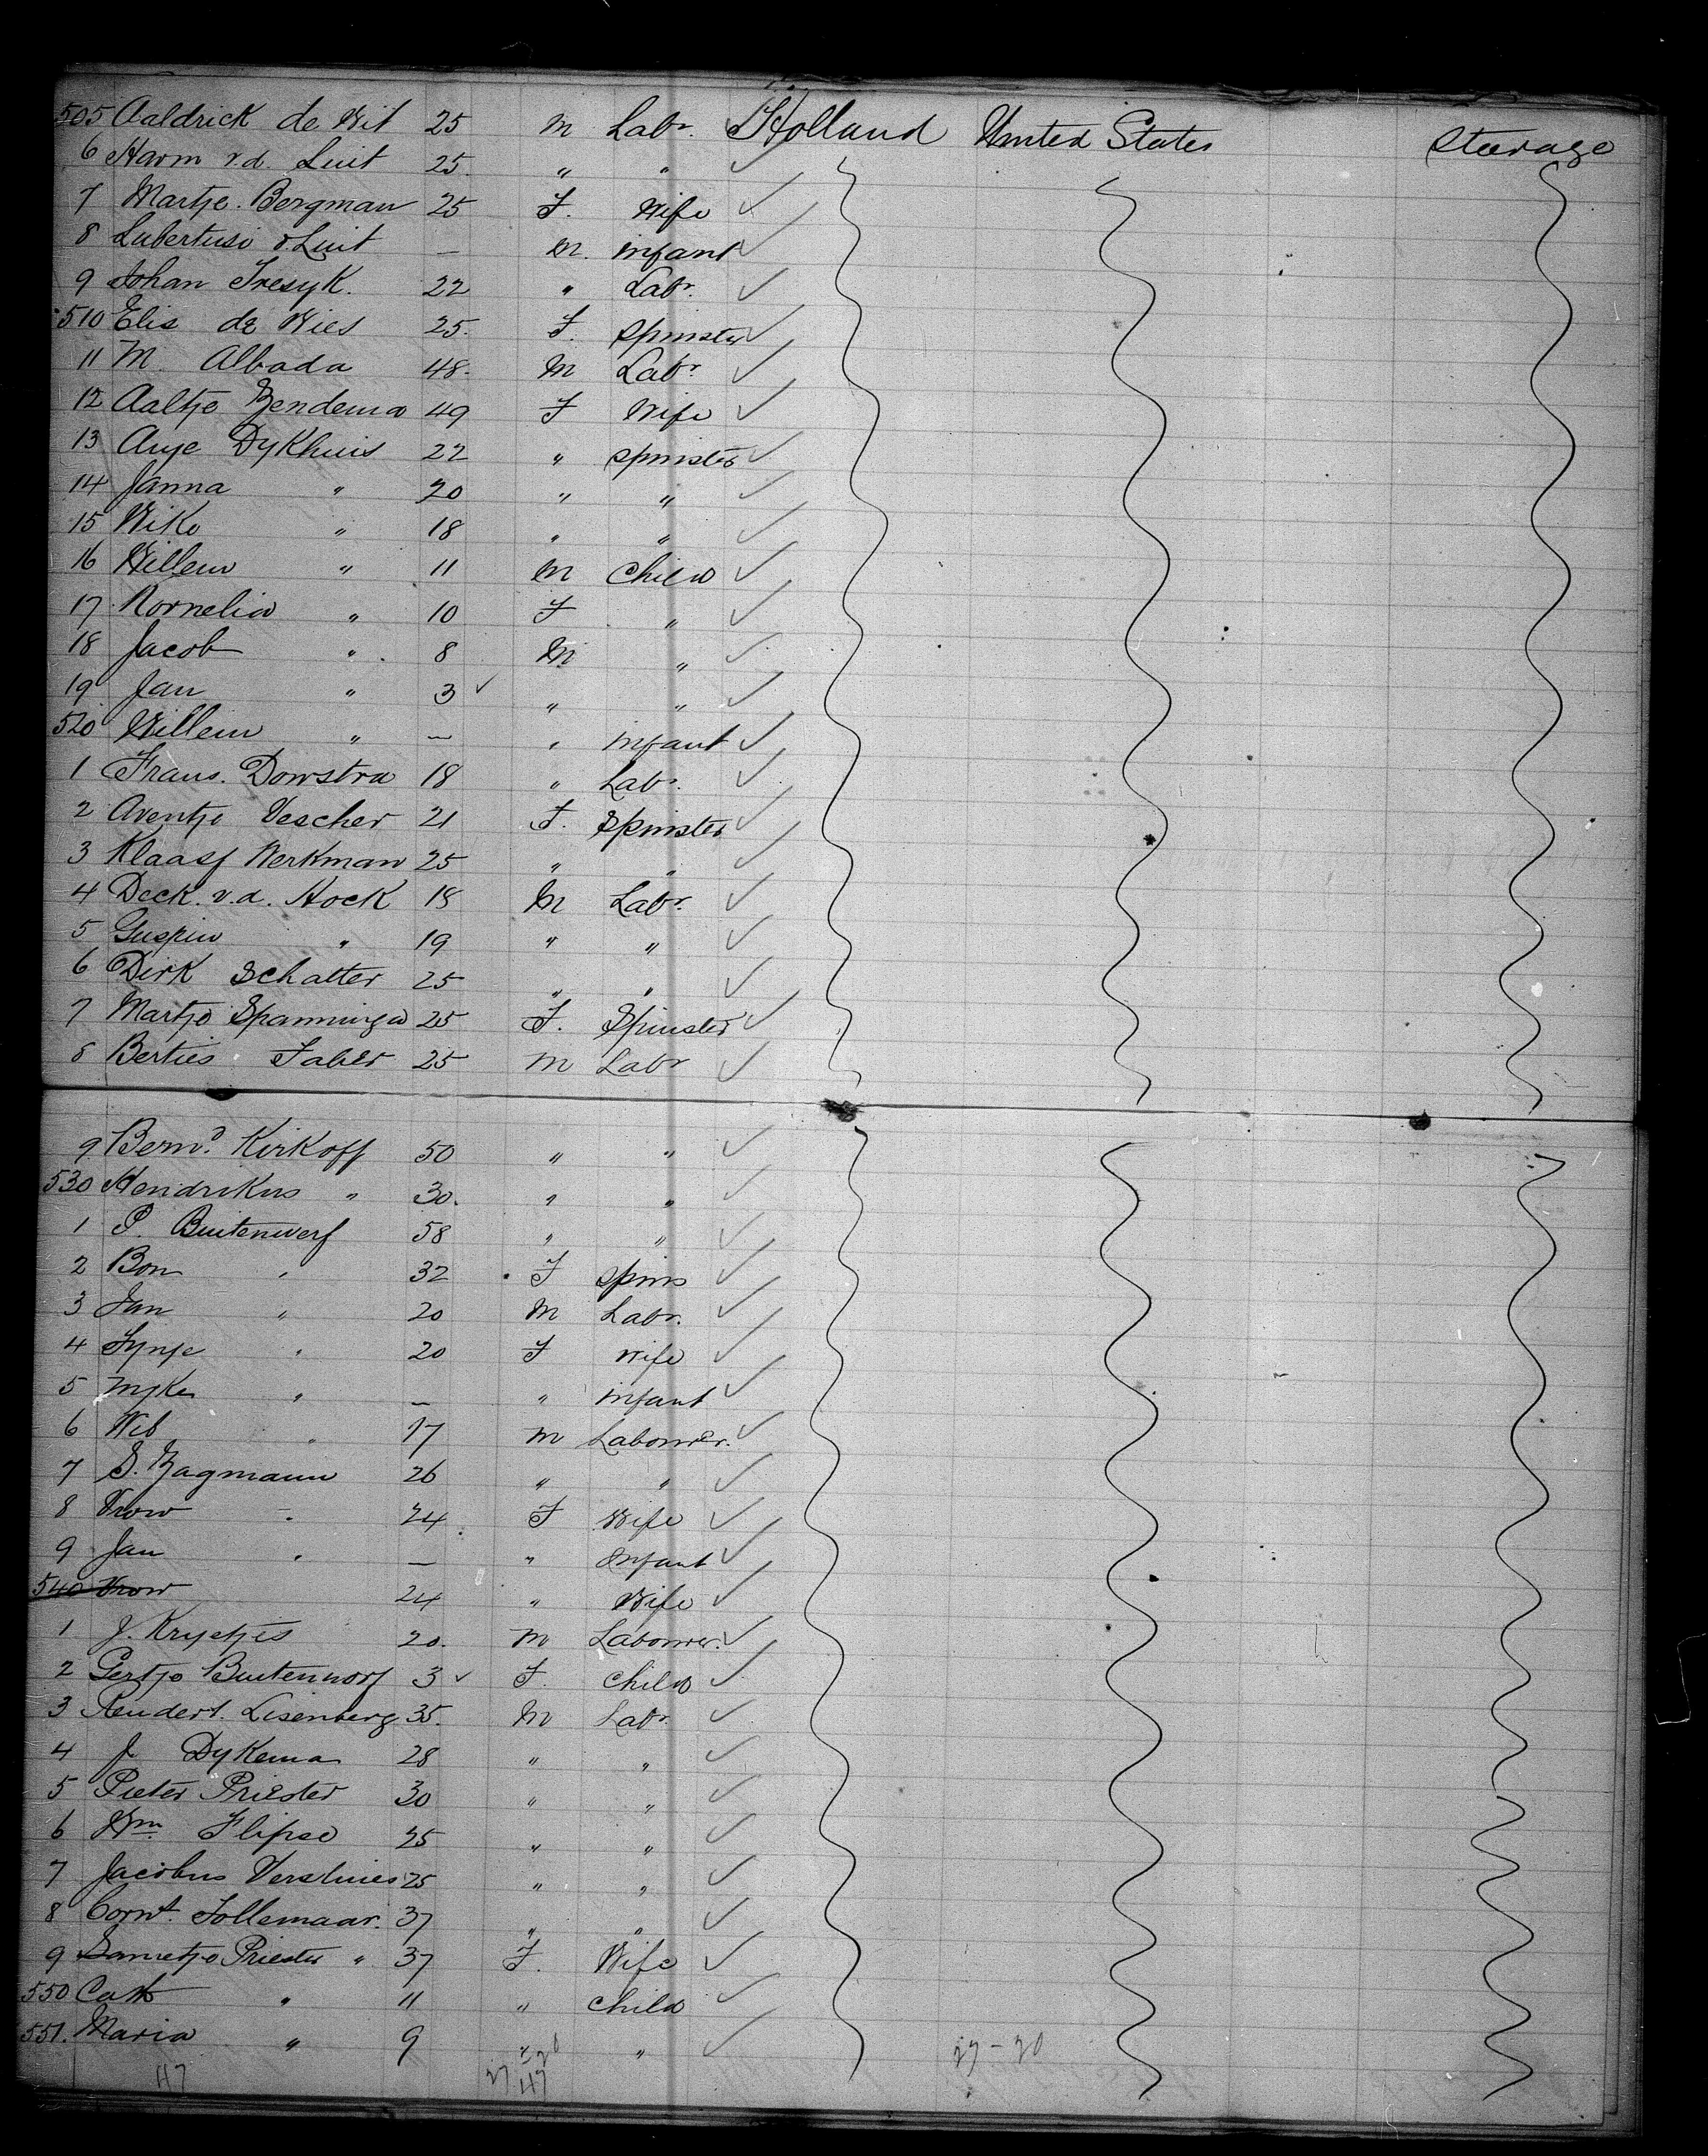 505 Aaldrick de Wit 25 M Labr. Holland United States Steerage
6 Harm v.d. Luit 25. " "
7 Martje. Bergman 25 F. Wife
8 Lubertusi v. Luit — M. infant
9 Johan Tresyk. 22 " Labr.
510 Elis de Vries 25. F. Spinster
11 M. Albada 48. M Labr
12 Aaltje Zendema 49 F Wife
13 Anje Dykhuis 22 " Spinster
14 Janna " 20 " "
15 Wike " 18 " "
16 Willem " 11 M Child
17 Kornelia " 10 F "
18 Jacob " 8 M "
19 Jan " 3 " "
520 Willem " — " infant
1 Frans. Dowstra 18 " Labr.
2 Aventje Vescher 21 F. Spinster
3 Klaasj Werkman 25 " "
4 Deck. v.d. Hock 18 M Labr.
5 " 19 " "
6 Dirk Schatter 25 " "
7 Martje Spanninga 25 F. Spinster
8 Berties Faber 25 M Labr
9 Bernd. Kirkoff 50 " "
530 Hendrikus " 30. " "
1 P. Buitenwerf 58 " "
2 Bon " 32 F Spins
3 Jan " 20 M Labr.
4 Tynje " 20 F Wife
5 " — " infant
6 Wib " 17 M Labourer.
7 S. Zagmann 26 " "
8 Vrow " 24 F Wife
9 Jan " — " Infant
540 Vrow 24 " Wife
1 J. Kryetjes 20. M Labourer.
2 Gertje Buitenworf 3 F. Child
3 Reindert. Lisenberg 35. M Labr.
4 J Dykema 28 " "
5 Pieter Priester 30 " "
6 Wm. Flipse 25 " "
7 Jacobus Versluies 25 " "
8 Cornt. Tollemaar. 37 " "
9 Priester " 37 F. Wife
550 Cath " 11 " Child
551. Maria " 9 " "
27 - 20
47 27 20 47